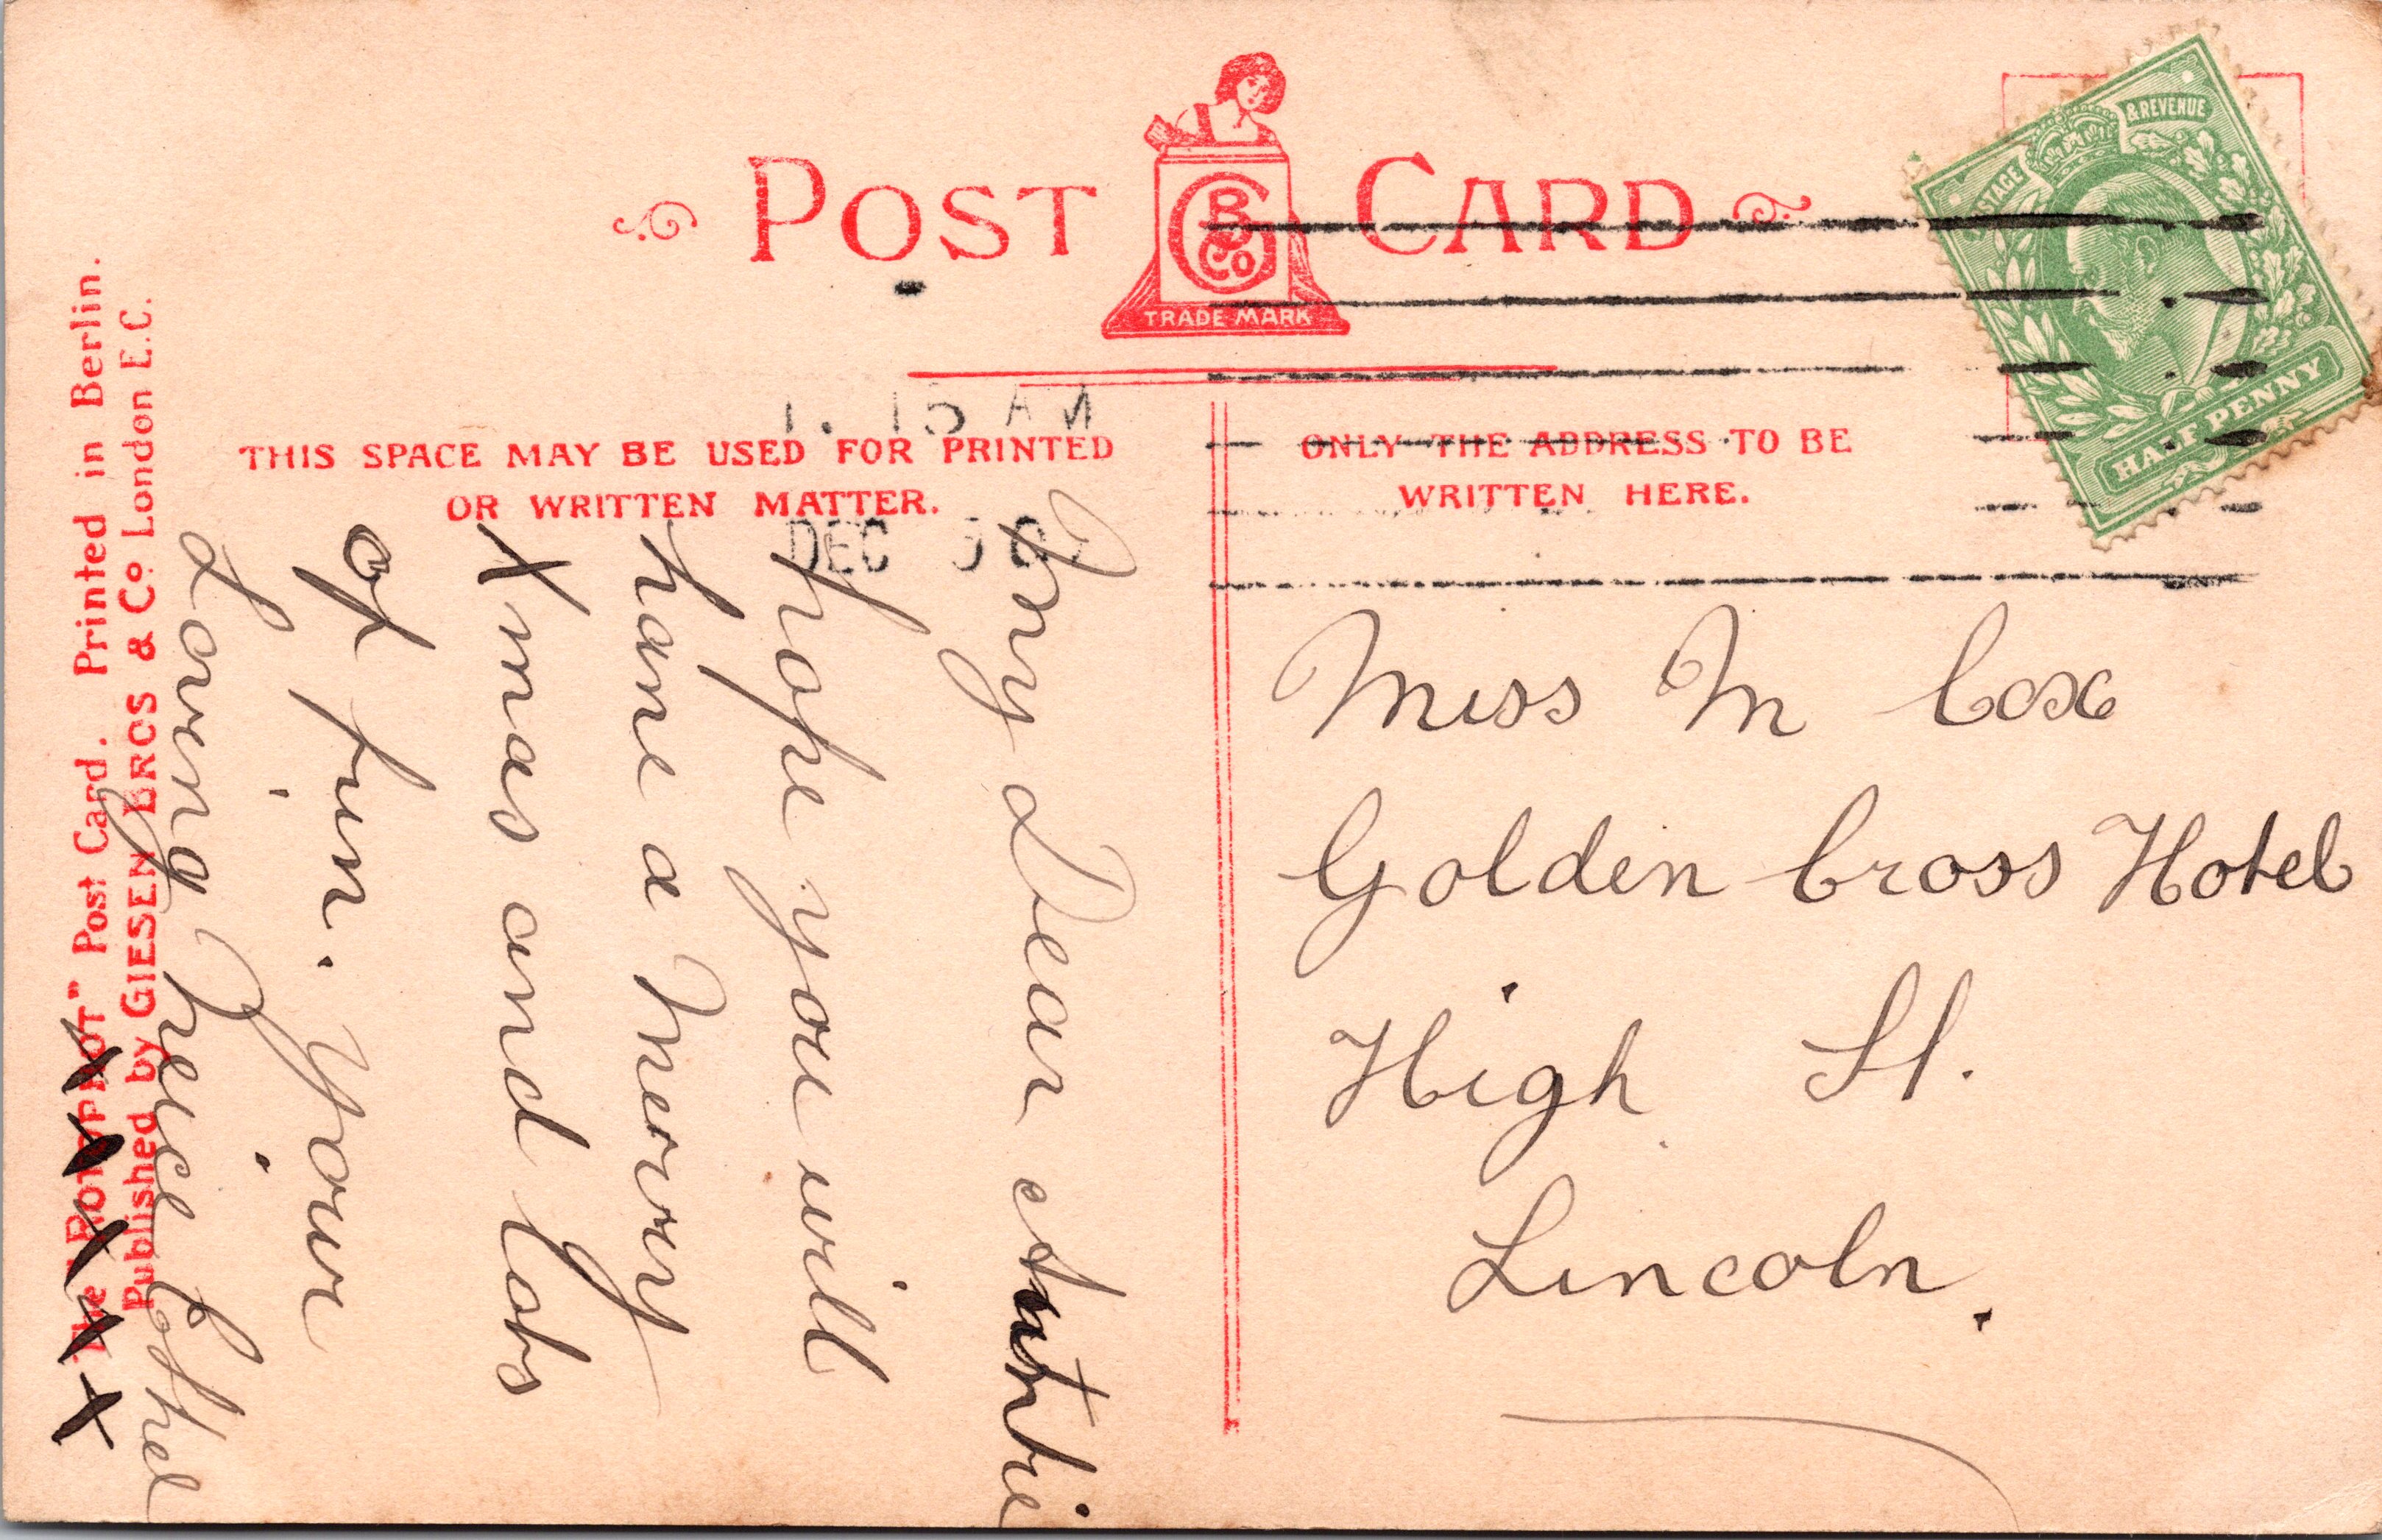 POST CARD
GB & Co
TRADE MARK
POSTAGE & REVENUE
HALFPENNY
1. 15 AM
DEC
THIS SPACE MAY BE USED FOR PRINTED
OR WRITTEN MATTER.
ONLY THE ADDRESS TO BE
WRITTEN HERE.
My Dear Auntie
hope you will
have a Merry
Xmas and lots
of fun. Your
Loving Neice Ethel
X X X X X
Miss M Cox
Golden Cross Hotel
High St.
Lincoln.
The "ROTOPHOT" Post Card. Printed in Berlin.
Published by GIESEN BROS & Co London E.C.